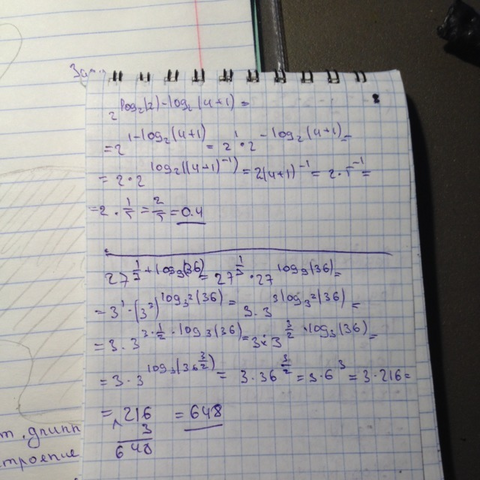 2^(log₂(2)-log₂(4+1)) =
= 2^(1-log₂(4+1)) = 2¹ · 2^(-log₂(4+1)) =
= 2 · 2^(log₂((4+1)⁻¹)) = 2(4+1)⁻¹ = 2 · 5⁻¹ =
= 2 · 1/5 = 2/5 = 0.4
27^(1/3 + log₉(36)) = 27^(1/3) · 27^(log₉(36)) =
= 3¹ · (3³)^(log₃²(36)) = 3 · 3^(3log₃²(36)) =
= 3 · 3^(3·1/2·log₃(36)) = 3 · 3^(3/2 · log₃(36)) =
= 3 · 3^(log₃(36^(3/2))) = 3 · 36^(3/2) = 3 · 6³ = 3 · 216 =
= 216 = 648
× 3
648
т. длинн
троение